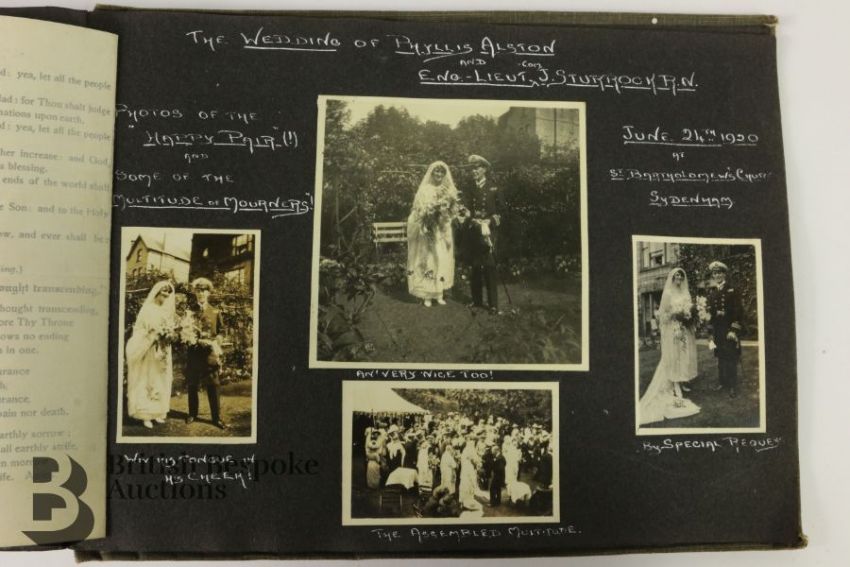 d: yea, let all the people
lad: for Thou shalt judge
nations upon earth.
d: yea, let all the people
her increase: and God,
s blessing.
ends of the world shall
e Son: and to the Holy
ow, and ever shall be:
ing.)
ought transcending,"
hought transcending,
ore Thy Throne
ows no ending
in one.
urance
h,
urance,
pain nor death.
arthly sorrow:
all earthly strife,
THE WEDDING OF PHYLLIS ALSTON
AND
ENG.-LIEUT. COM J. STURROCK R.N.
PHOTOS OF THE
"HAPPY PAIR" (!)
AND
SOME OF THE
"MULTITUDE OF MOURNERS"!
JUNE 24TH 1920
AT
ST BARTHOLOMEWS
SYDENHAM
AN' VERY NICE TOO!
WIV HIS TONGUE IN
HIS CHEEK!
BY SPECIAL REQUES
THE ASSEMBLED MULTITUDE.
B British Bespoke
Auctions